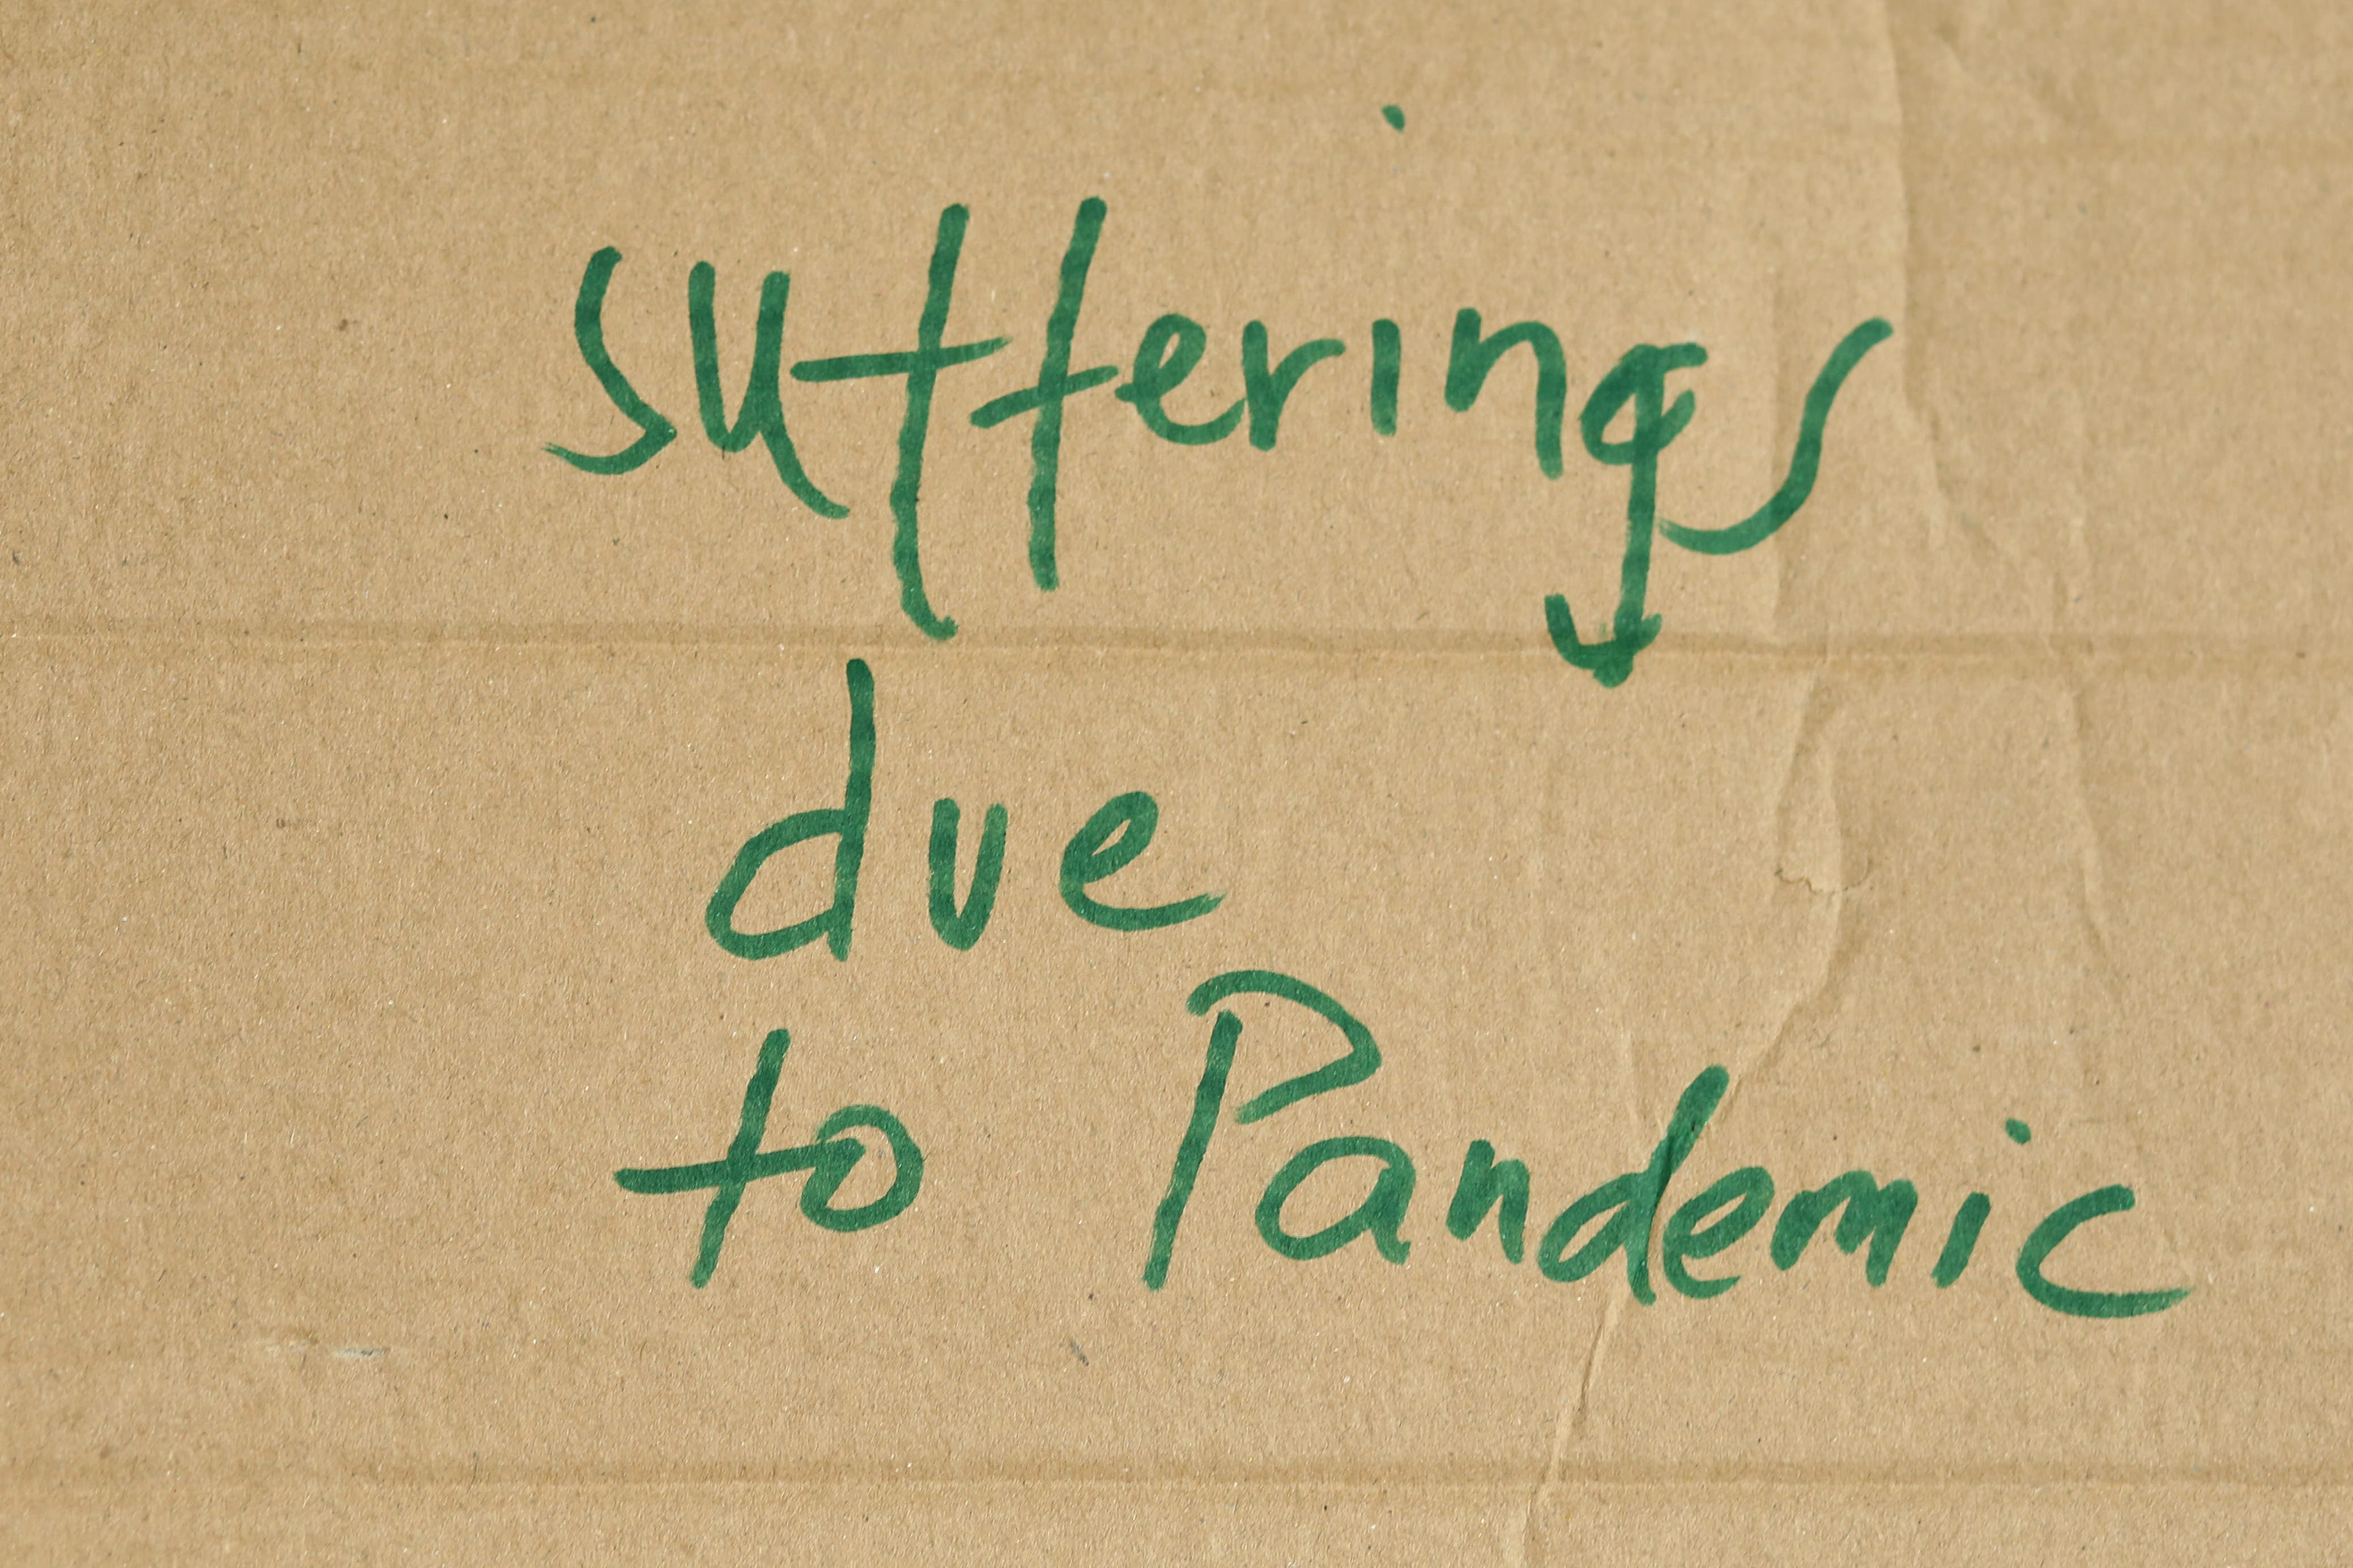 sufferings
due
to Pandemic